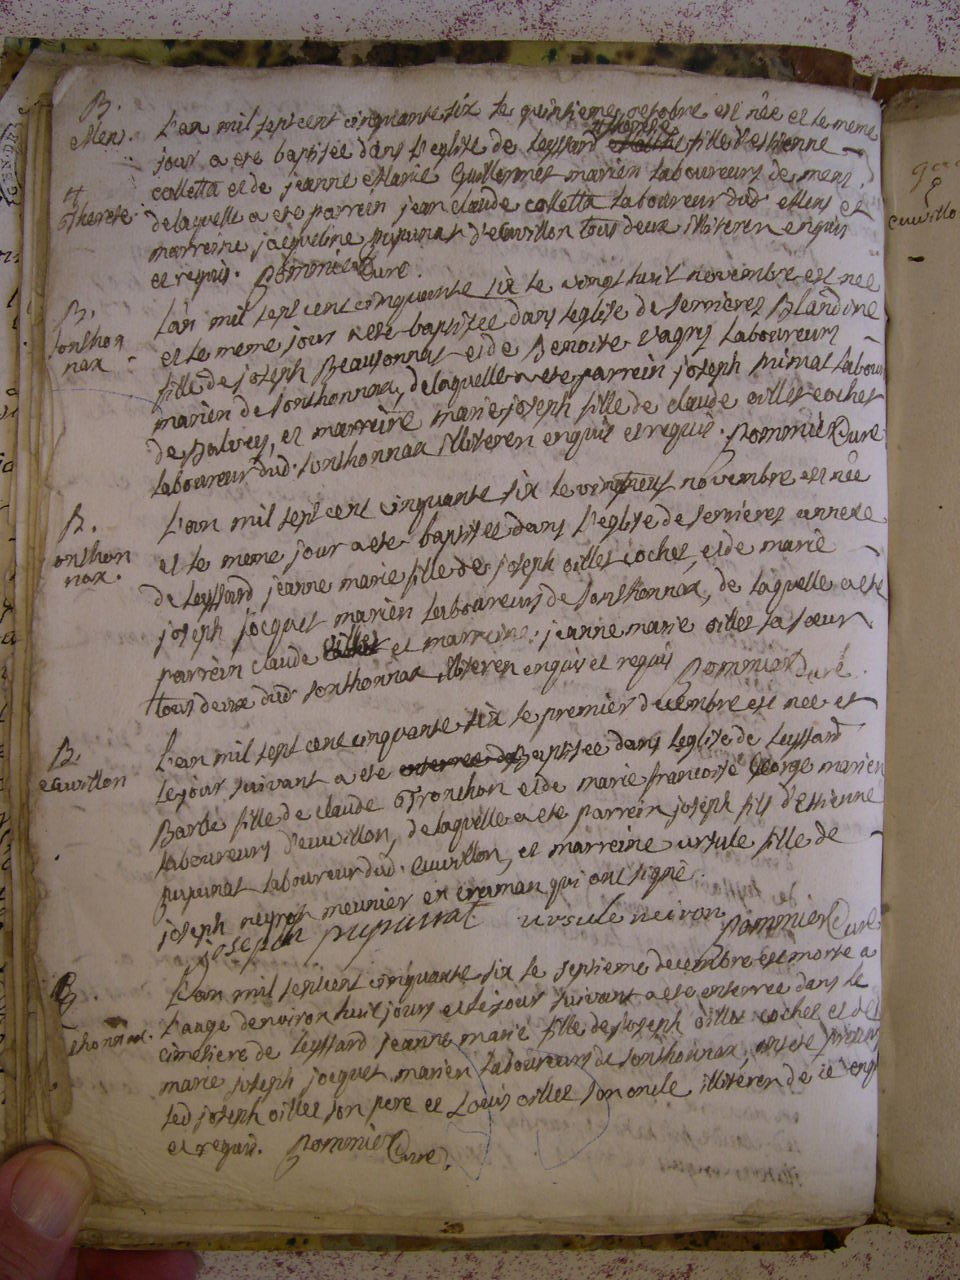 B.
Mens.
L'an mil sept cent cinquante six le quinsieme octobre est née et le meme
jour a eté baptisée dans l'eglise de Leyssard therese fille d'estienne
colletta et de jeanne Marie Guillermet mariés Laboureurs de mens
+
Therese
delaquelle a ete parrein jean claude colletta Laboureur dud. Mens et
marreine jacqueline pupunat d'euvillon tous deux illiteren enquis
et requis. Pommier Curé.
B.
sonthon
nax
L'an mil sept cent cinquante six le vingt huit novembre est née
et le meme jour a eté baptisée dans leglise de serrieres Blandine
fille de joseph Beausonnat et de Benoite vagry Laboureurs
mariés de sonthonnax, delaquelle a ete parrein joseph Labou
de et marreine marie joseph fille de claude oillet cochet
Laboureur dud. sonthonnax illiteren enquis et requis. Pommier Curé
B.
onthon
nax.
L'an mil sept cent cinquante six le vingt neuf novembre est née
et le meme jour a ete baptisée dans l'eglise de serrieres annexe
de Leyssard jeanne marie fille de joseph oillet cochet, et de marie
joseph jocquet mariés Laboureurs de sonthonnax, de laquelle a eté
parrein claude oillet et marreine jeanne marie oillet sa soeur
tous deux dud. sonthonnax illiteren enquis et requis Pommier Curé.
B.
euvillon
L'an mil sept cent cinquante six le premier decembre est née et
le jour suivant a ete baptisée dans leglise de Leyssard
Barbe fille de claude Tronchon et de marie francoise George mariés
laboureurs d'euvillon, delaquelle a ete parrein joseph fils d'Estienne
pupunat Laboureur dud. Euvillon, et marreine ursule fille de
joseph neyron meunier en craman qui ont signé.
joseph pupunat ursule neiron Pommier Curé
thonnax.
L'an mil sept cent cinquante six le septieme decembre est morte a
l'aage denviron huit jours et le jour suivant a ete enterrée dans le
cimetiere de Leyssard jeanne marie fille de joseph oillet cochet et de
marie joseph jocquet mariés Laboureurs de sonthonnax, ont eté presens
led. joseph oillet son pere et Louis oillet son oncle illiteren de ce enq
et requis. Pommier Curé.
euvillo